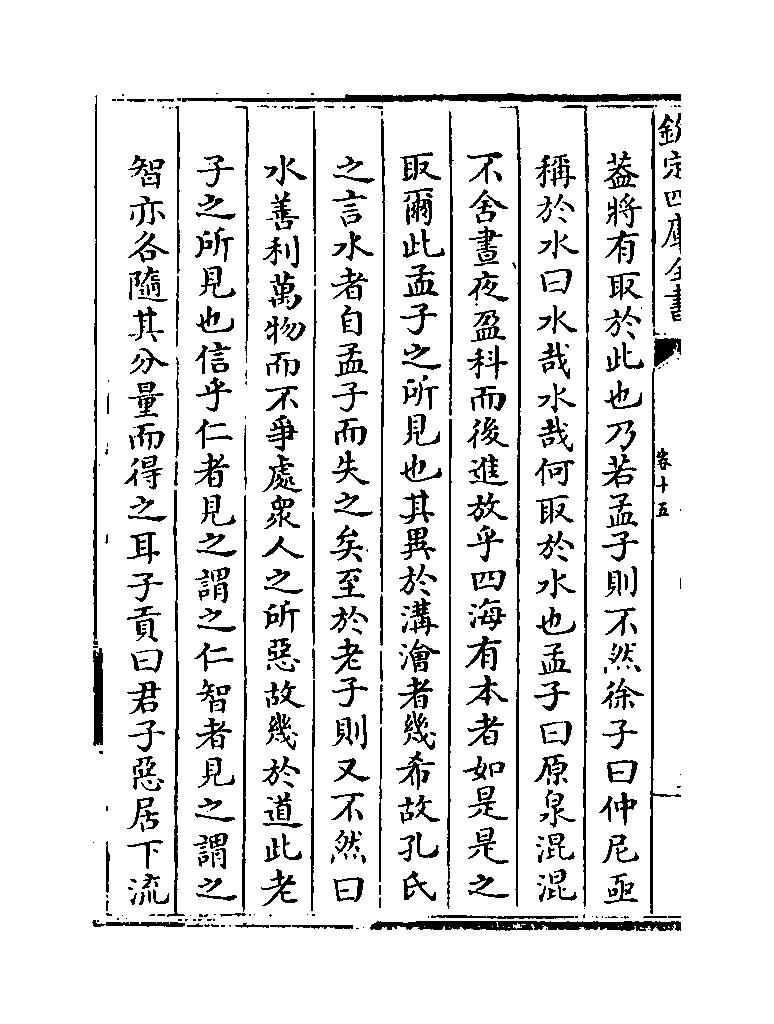 欽定四庫全書
卷十五
葢將有取於此也乃若孟子則不然徐子曰仲尼亟
稱於水曰水哉水哉何取於水也孟子曰原泉混混
不舍晝夜盈科而後進放乎四海有本者如是是之
取爾此孟子之所見也其異於溝澮者幾希故孔氏
之言水者自孟子而失之矣至於老子則又不然曰
水善利萬物而不爭處衆人之所惡故幾於道此老
子之所見也信乎仁者見之謂之仁智者見之謂之
智亦各隨其分量而得之耳子貢曰君子惡居下流